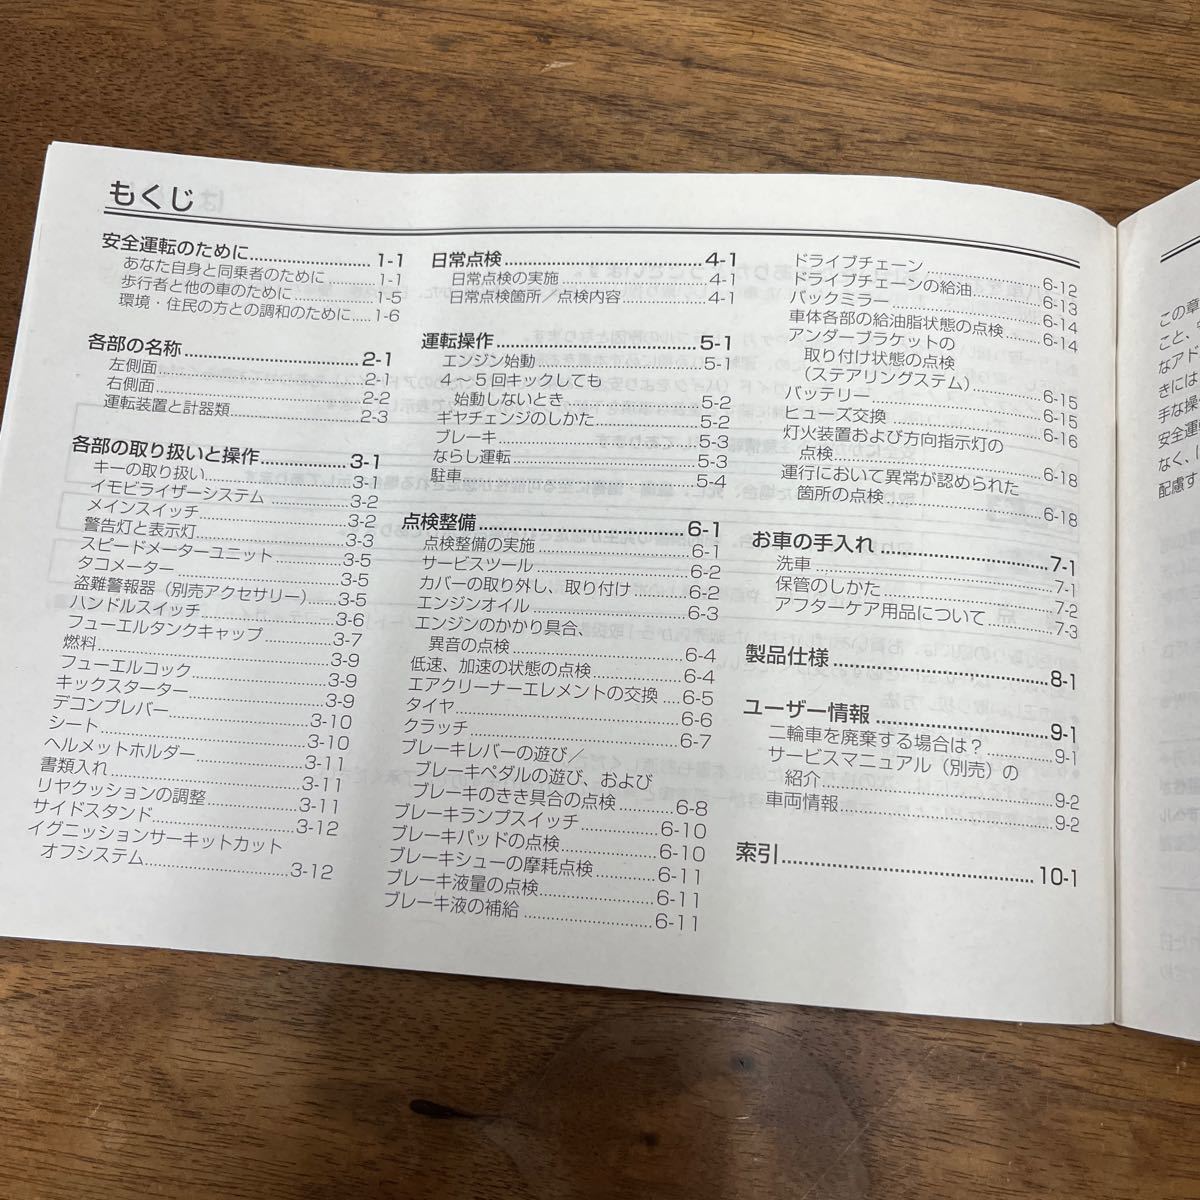 もくじ
安全運転のために 1-1
あなた自身と同乗者のために 1-1
歩行者と他の車のために 1-5
環境・住民の方との調和のために 1-6
各部の名称 2-1
左側面 2-1
右側面 2-2
運転装置と計器類 2-3
各部の取り扱いと操作 3-1
キーの取り扱い 3-1
イモビライザーシステム 3-2
メインスイッチ 3-2
警告灯と表示灯 3-3
スピードメーターユニット 3-5
タコメーター 3-5
盗難警報器（別売アクセサリー） 3-5
ハンドルスイッチ 3-6
フューエルタンクキャップ 3-7
燃料 3-9
フューエルコック 3-9
キックスターター 3-9
デコンプレバー 3-10
シート 3-10
ヘルメットホルダー 3-11
書類入れ 3-11
リヤクッションの調整 3-11
サイドスタンド 3-12
イグニッションサーキットカット
オフシステム 3-12
日常点検 4-1
日常点検の実施 4-1
日常点検箇所／点検内容 4-1
運転操作 5-1
エンジン始動 5-1
4～5回キックしても
始動しないとき 5-2
ギヤチェンジのしかた 5-2
ブレーキ 5-3
ならし運転 5-3
駐車 5-4
点検整備 6-1
点検整備の実施 6-1
サービスツール 6-2
カバーの取り外し、取り付け 6-2
エンジンオイル 6-3
エンジンのかかり具合、
異音の点検 6-4
低速、加速の状態の点検 6-4
エアクリーナーエレメントの交換 6-5
タイヤ 6-6
クラッチ 6-7
ブレーキレバーの遊び／
ブレーキペダルの遊び、および
ブレーキのきき具合の点検 6-8
ブレーキランプスイッチ 6-10
ブレーキパッドの点検 6-10
ブレーキシューの摩耗点検 6-11
ブレーキ液量の点検 6-11
ブレーキ液の補給 6-11
ドライブチェーン 6-12
ドライブチェーンの給油 6-13
バックミラー 6-14
車体各部の給油脂状態の点検 6-14
アンダーブラケットの
取り付け状態の点検
（ステアリングステム） 6-15
バッテリー 6-15
ヒューズ交換 6-16
灯火装置および方向指示灯の
点検 6-18
運行において異常が認められた
箇所の点検 6-18
お車の手入れ 7-1
洗車 7-1
保管のしかた 7-2
アフターケア用品について 7-3
製品仕様 8-1
ユーザー情報 9-1
二輪車を廃棄する場合は？ 9-1
サービスマニュアル（別売）の
紹介 9-2
車両情報 9-2
索引 10-1
この章
こと、
なアド
きには
手な操
安全運
なく、
配慮す